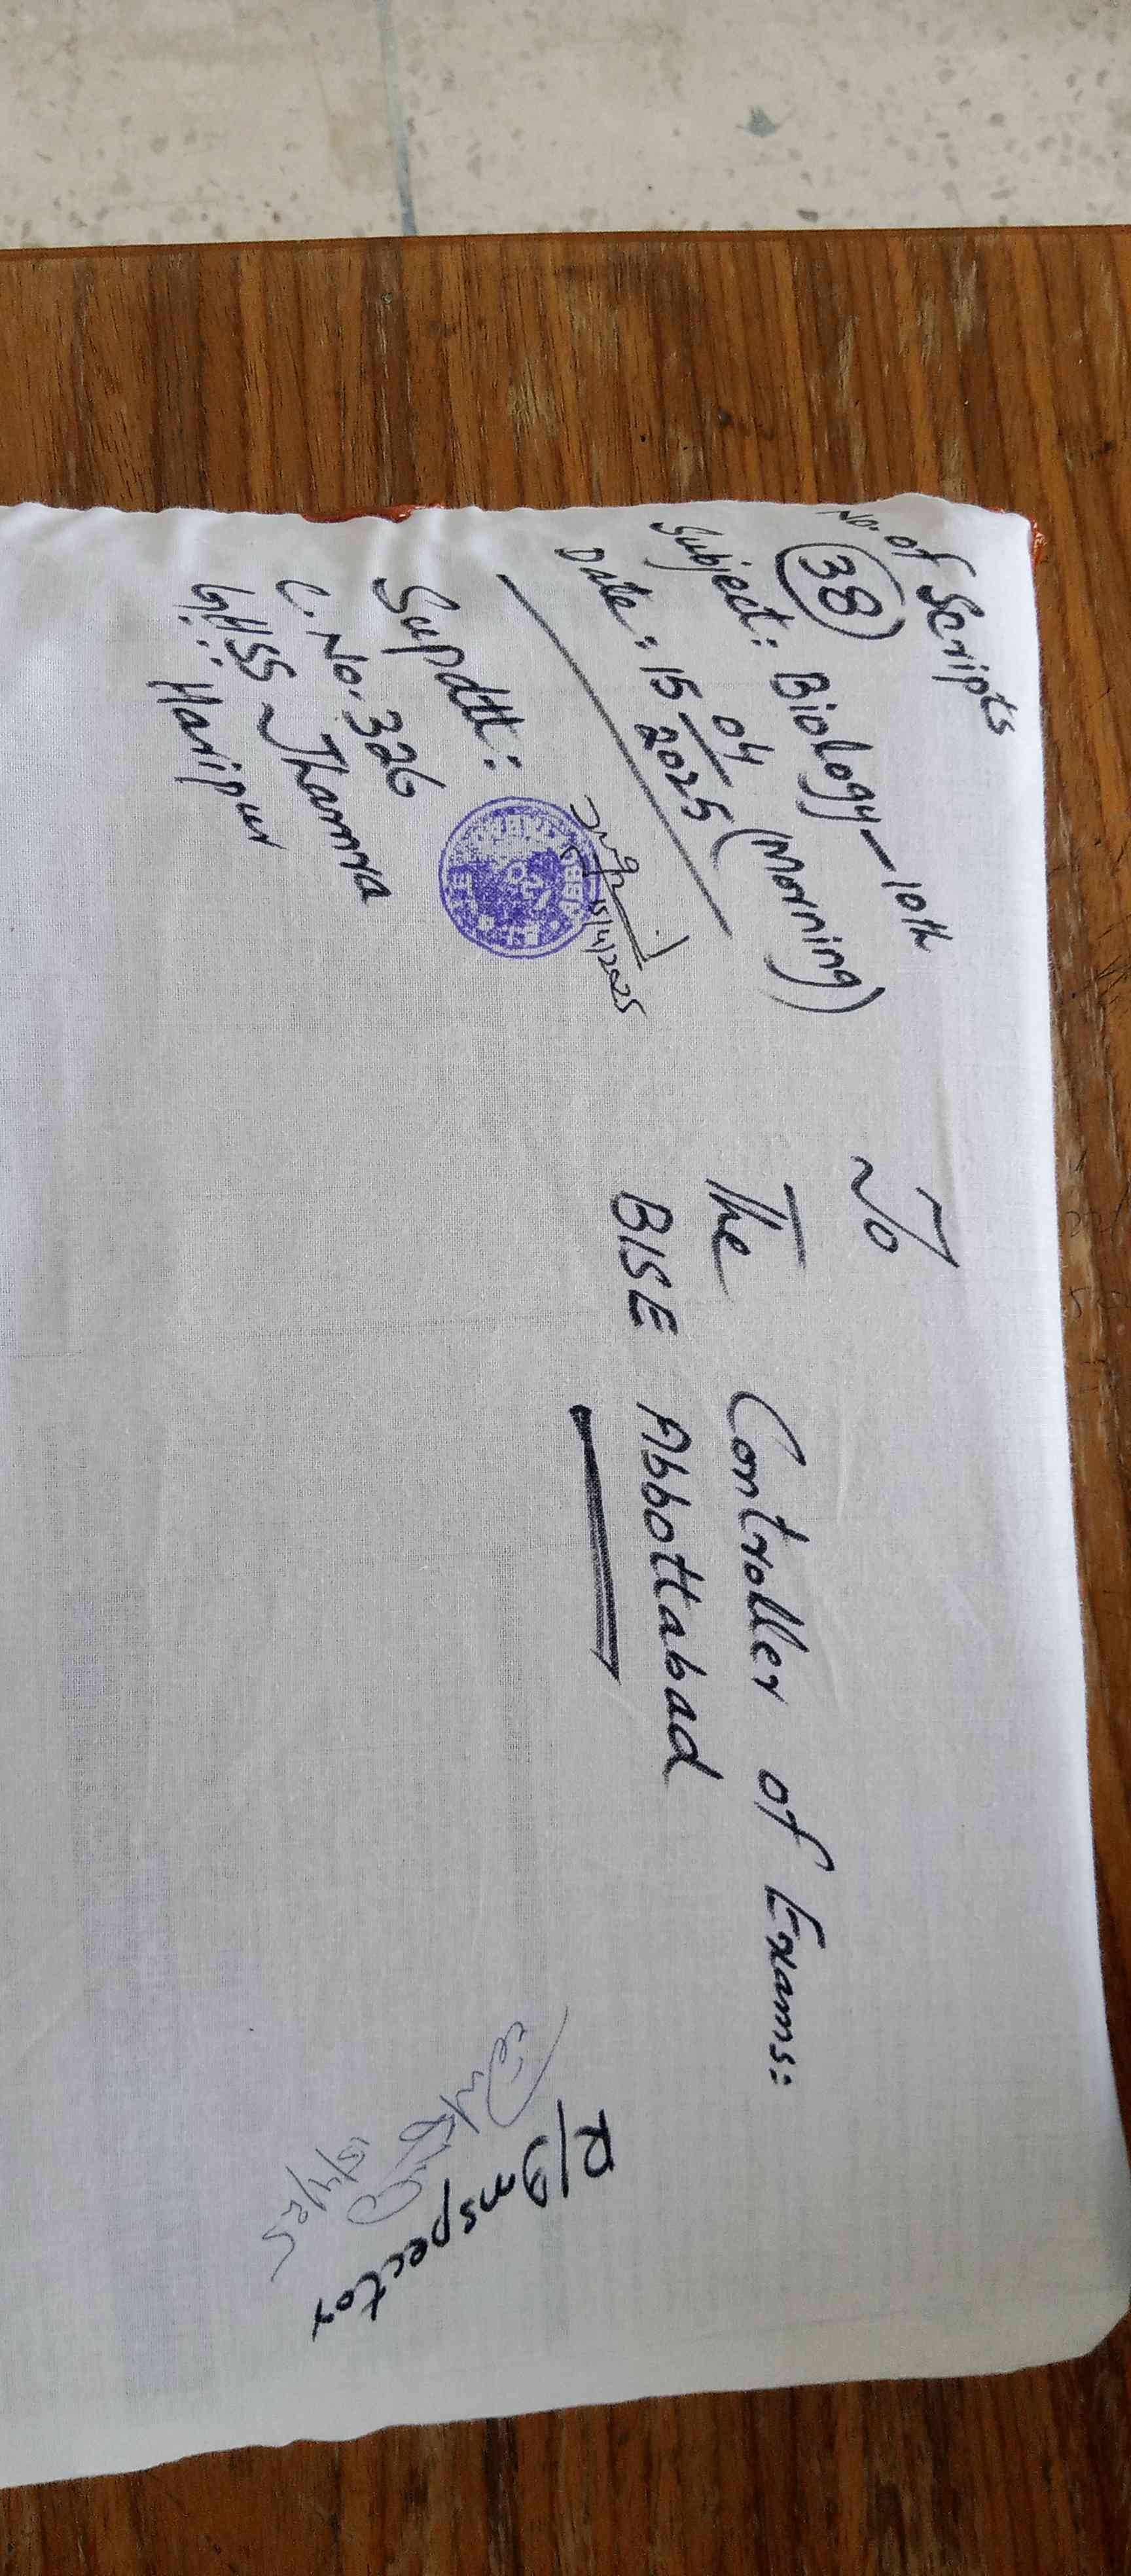 No. of Scripts
38
Subject: Biology-10th
Date: 15/04/2025 (Morning)
To
The Controller of Exams:
BISE Abbottabad
15/4/2025
Supdtt:
C. No. 326
GHSS Jhamra
Haripur
R/Inspector
15/4/25